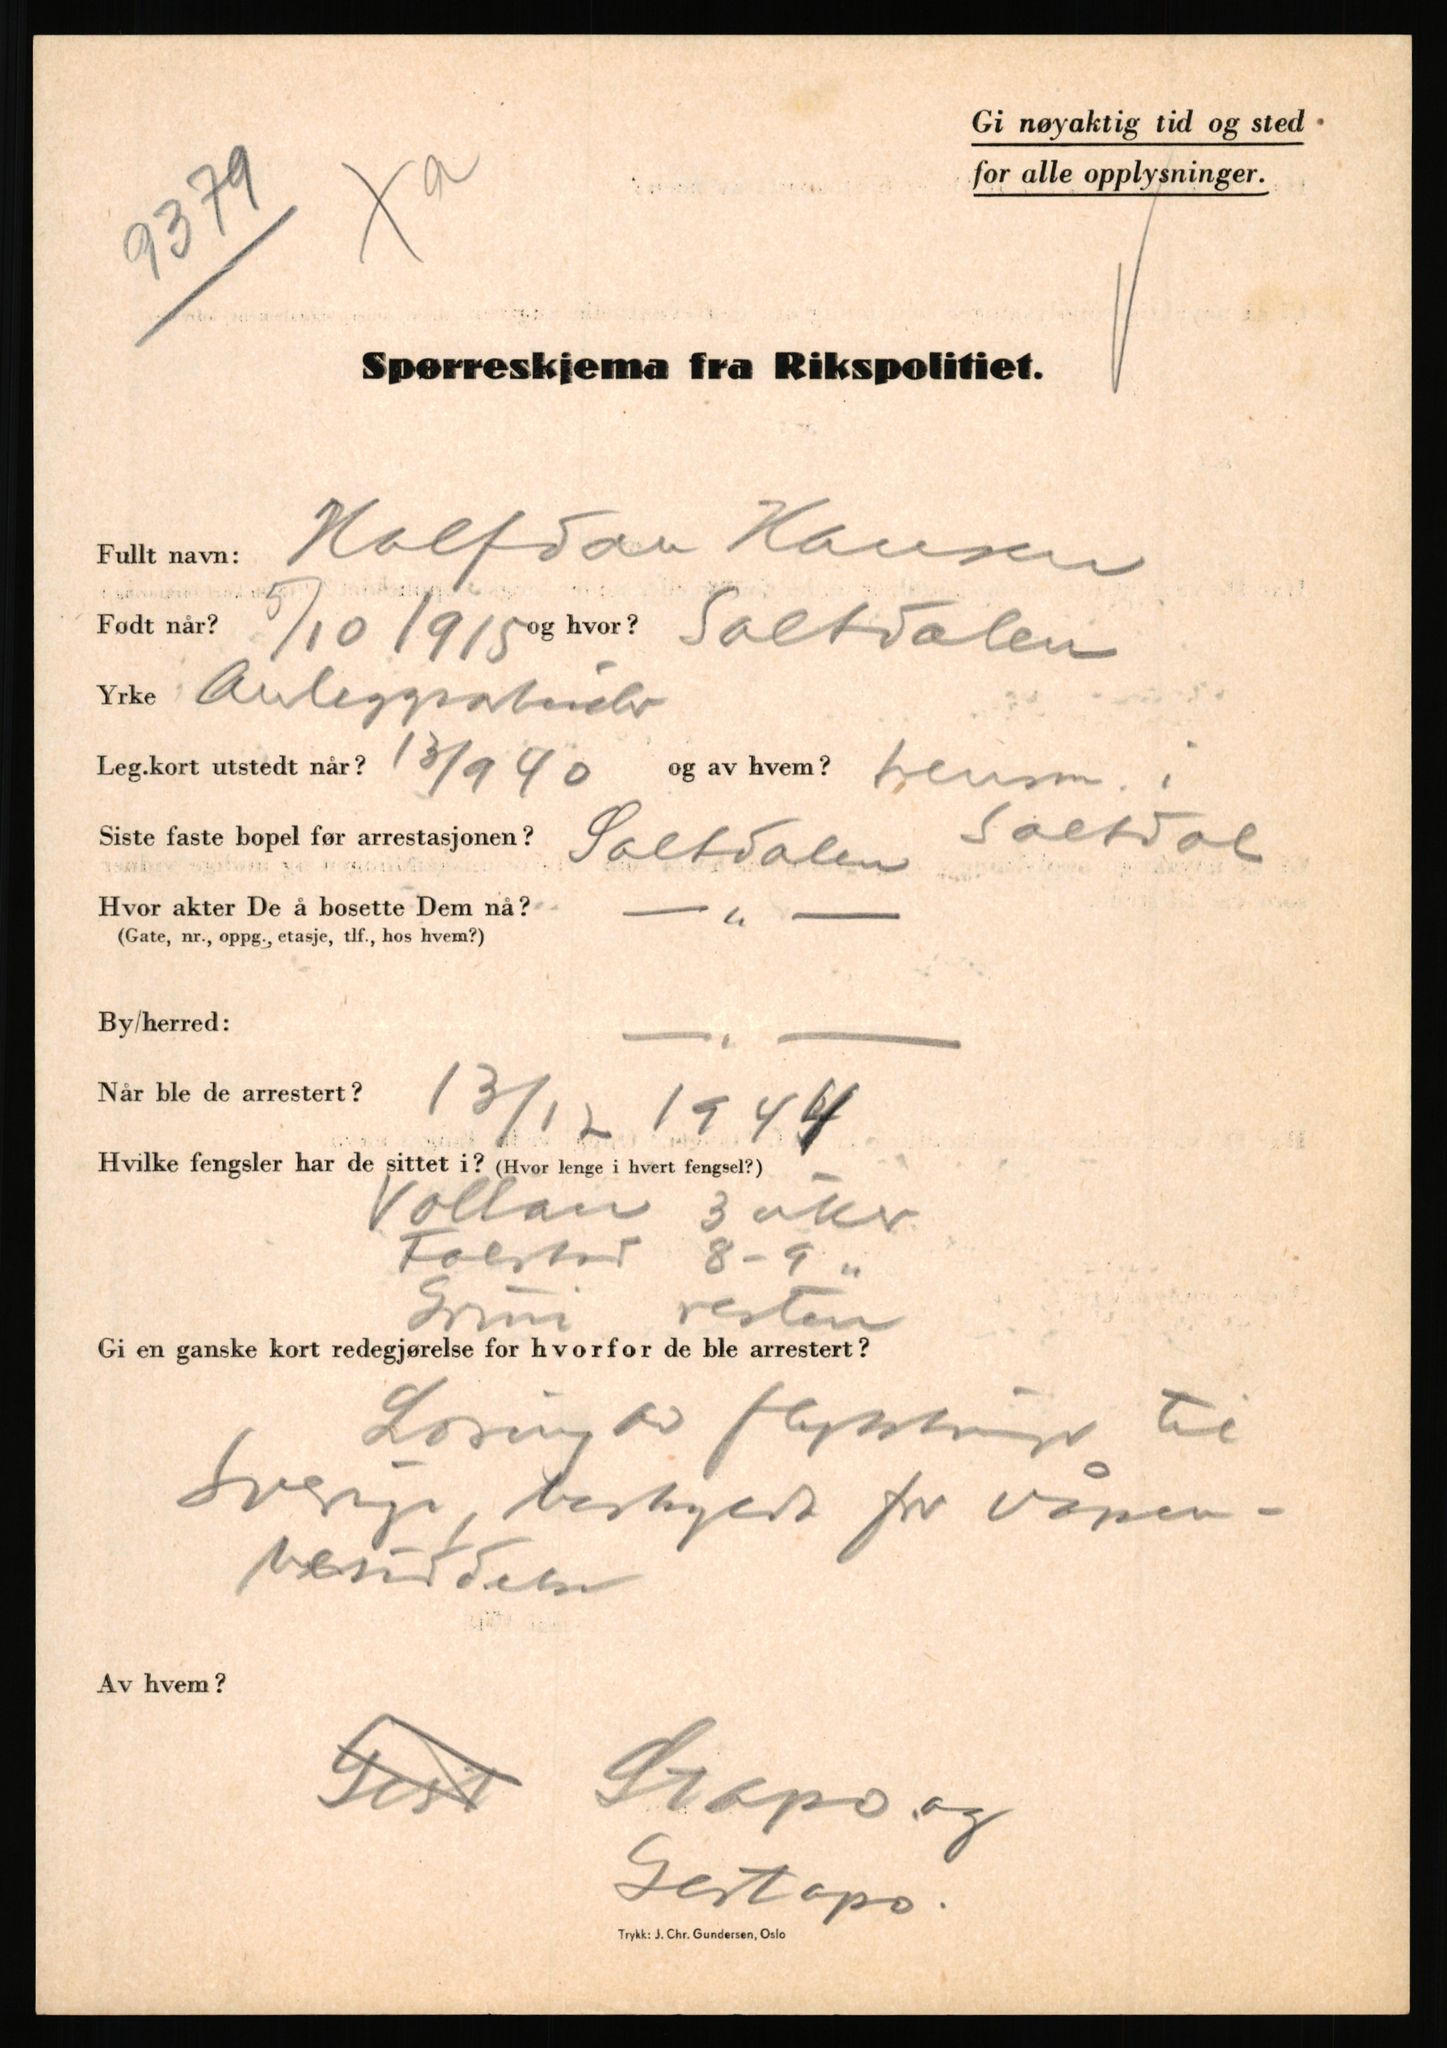 Gi nøyaktig tid og sted
for alle opplysninger.
9379
X a
Spørreskjema fra Rikspolitiet.
Fullt navn: Halfdan Hansen
Født når? 5/10 1915 og hvor? Saltdalen
Yrke Anleggsarbeider
Leg.kort utstedt når? 13/9 40 og av hvem? Lensm. i
Saltdal
Siste faste bopel før arrestasjonen? Saltdalen
Hvor akter De å bosette Dem nå? — " —
(Gate, nr., oppg., etasje, tlf., hos hvem?)
By/herred: — " —
Når ble de arrestert? 13/12 1944
Hvilke fengsler har de sittet i? (Hvor lenge i hvert fengsel?)
Vollan 3 uker
Falstad 8-9 "
Grini resten
Gi en ganske kort redegjørelse for hvorfor de ble arrestert?
Losing av flyktninger til
Sverige, beskyldt for våpen-
besiddelse
Av hvem?
Gest Stapo og
Gestapo.
Trykk: J. Chr. Gundersen, Oslo